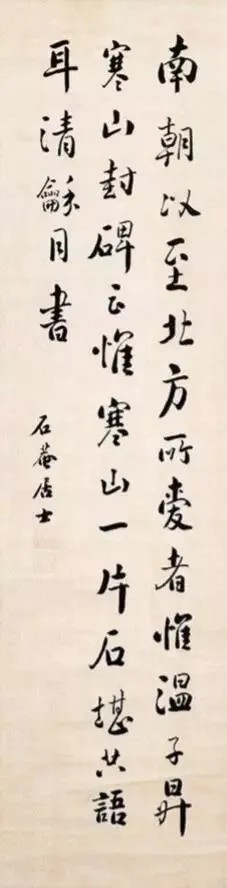 南朝以至北方所愛者惟溫子昇
寒山封碑云惟寒山一片石堪共語
耳清龢月書
石菴居士